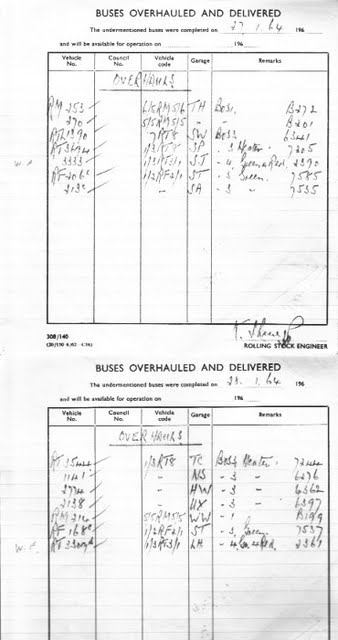 BUSES OVERHAULED AND DELIVERED
The undermentioned buses were completed on 27.1.64 196
and will be available for operation on 196
Vehicle No. Council No. Vehicle code Garage Remarks
OVERHAULS
RM 253 6/5RM5/6 TH BOS1. B272
270 5/5RM5/5 - " B201
RTL1390 7RT8 SW BOS3
RT3694 1/3RT8 SP . 3 Heater. 7205
W.F. 3333 1/3RT3/1 ST - 4 Green 2390
RF206 1/2RF2/1 ST - 3 Green. 7585
213 - SA - 3 " 7535
308/140
ROLLING STOCK ENGINEER
BUSES OVERHAULED AND DELIVERED
The undermentioned buses were completed on 28.1.64 196
and will be available for operation on 196
Vehicle No. Council No. Vehicle code Garage Remarks
OVERHAULS
RT 3544 1/3RT8 TC BOS3 Heater. 7244
1141 - NS - 3 " 6276
2774 - HW - 3 " 6362
2138 - UX - 3 " 6397
RM 214 5/5RM5/5 WW - 1 B199
RF 168 1/2RF2/1 ST - 3 Green. 7537
W.F. RT 1/3RT3/1 LH - 4 2361